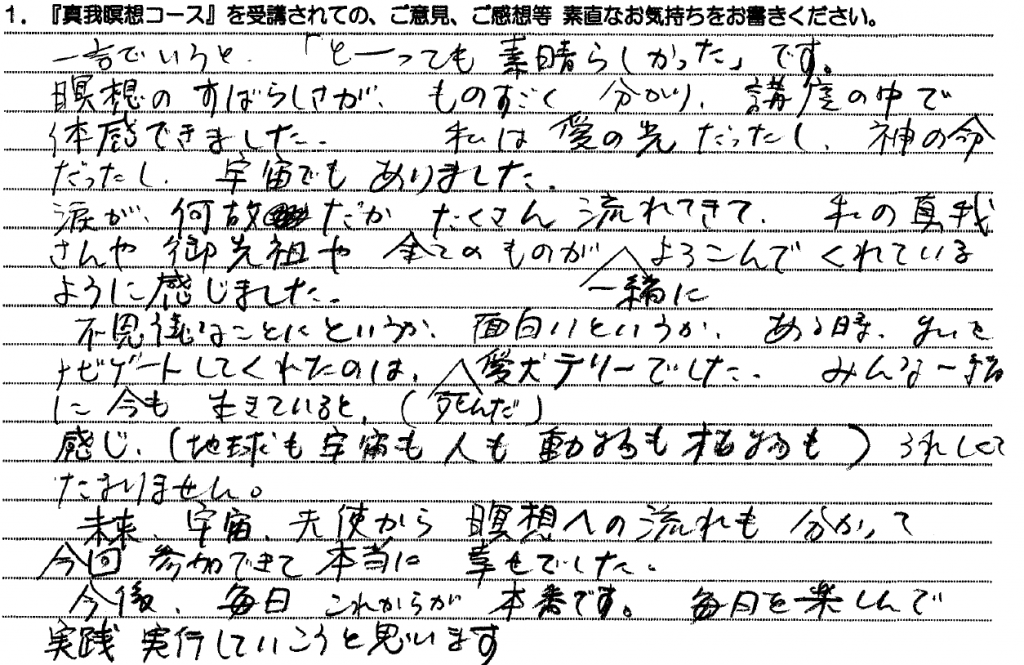 1. 『真我瞑想コース』を受講されての、ご意見、ご感想等 素直なお気持ちをお書きください。
一言でいうと、「とーっても 素晴らしかった」です。
瞑想の すばらしさが、ものすごく 分かり、講座の中で
体感できました。 私は 愛の光 だったし、神の命
だったし、宇宙でも ありました。
涙が、何故だか たくさん 流れてきて、私の真我
さんや 御先祖や 全てのものが よろこんで くれている
ように 感じました。 一緒に
不思議なことにというか、面白いというか、ある時、
ナビゲートしてくれたのは、愛犬テリーでした。 みんな一緒
に 今も 生きていると、(死んだ)
感じ、(地球も 宇宙も 人も 動物も 植物も) うれしくて
たまりません。
未来、宇宙、天使から 瞑想への 流れも 分かって
今回 参加できて 本当に 幸せでした。
今後、毎日 これからが 本番です。 毎日を楽しんで
実践 実行していこうと思います